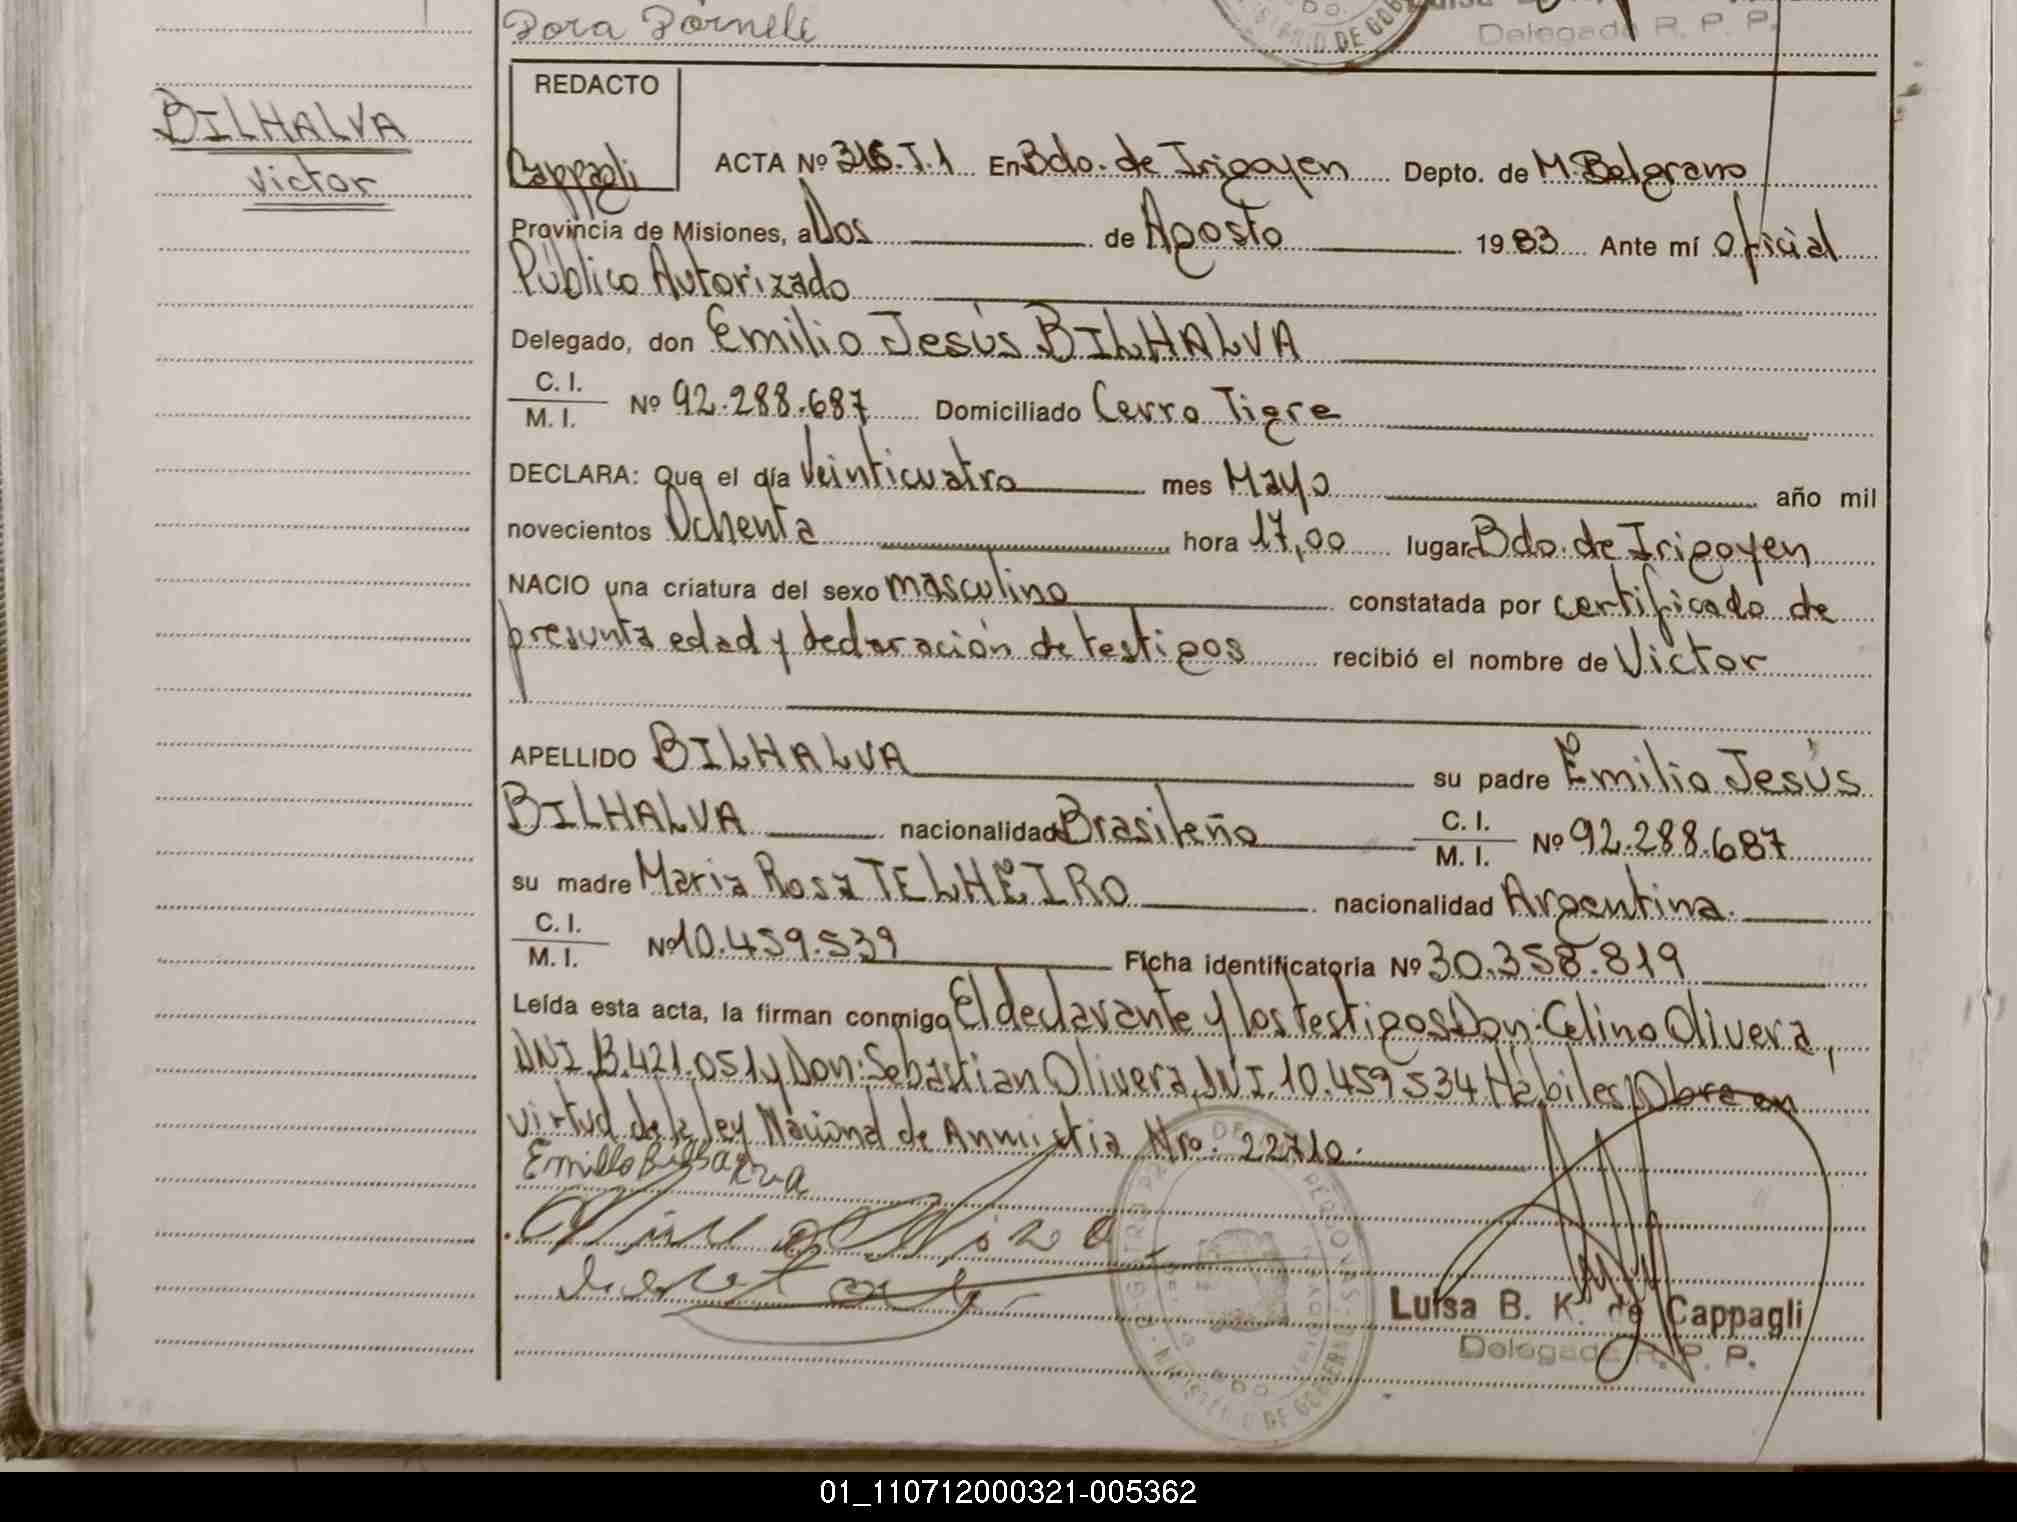 Dora Dornele
DE GOB
Delegada R. P. P.
BILHALVA
Victor
REDACTO
Cappagli
ACTA Nº 316.T.1 En Bdo. de Irigoyen Depto. de M. Belgrano
Provincia de Misiones, a Dos de Agosto 1983 Ante mí Oficial
Público Autorizado
Delegado, don Emilio Jesús BILHALVA
C. I.
M. I. Nº 92.288.687 Domiciliado Cerro Tigre
DECLARA: Que el día Veinticuatro mes Mayo año mil
novecientos Ochenta hora 17,00 lugar Bdo. de Irigoyen
NACIO una criatura del sexo masculino constatada por certificado de
presunta edad y declaración de testigos recibió el nombre de Victor
APELLIDO BILHALVA su padre Emilio Jesús
BILHALVA nacionalidad Brasileño C. I. M. I. Nº 92.288.687
su madre Maria Rosa TELHEIRO nacionalidad Argentina.
C. I.
M. I. Nº 10.459.539 Ficha identificatoria Nº 30.358.819
Leída esta acta, la firman conmigo El declarante y los testigos Don: Celino Olivera,
DNI. 8.421.051 y Don: Sebastian Olivera, DNI. 10.459.534 Hábiles. Obra en
virtud de la ley Nacional de Anmistia Nro. 22710.
Luisa B. K. de Cappagli
Delegada R. P. P.
01_110712000321-005362